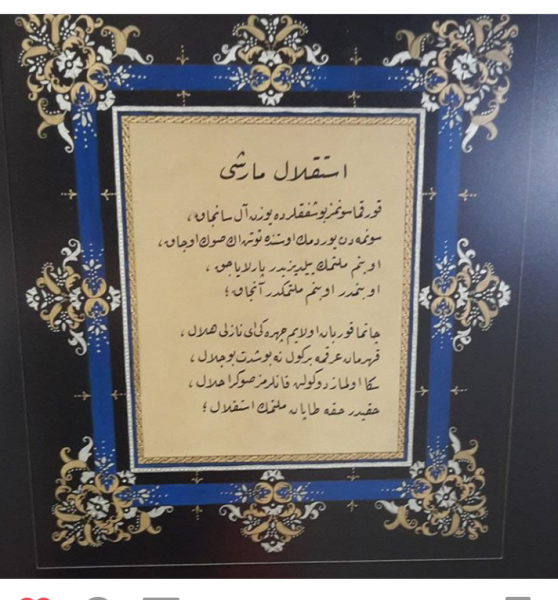 استقلال مارشی
قورقما سونمز بو شفقلرده یوزن آل سانجاق ،
سونمه دن یوردمك اوستنده توتن اك صوك اوجاق ،
او بنم ملتمك ییلدیزیدر پارلایاجق ،
او بنمدر او بنم ملتمكدر آنجاق ؛
چاتما قوربان اولایم چهره كی ای نازلی هلال ،
قهرمان عرقمه بر كول نه بو شدت بو جلال ،
سكا اولماز دوكولن قانلرمز صوكرا حلال ،
حقیدر حقه طاپان ملتمك استقلال ؛